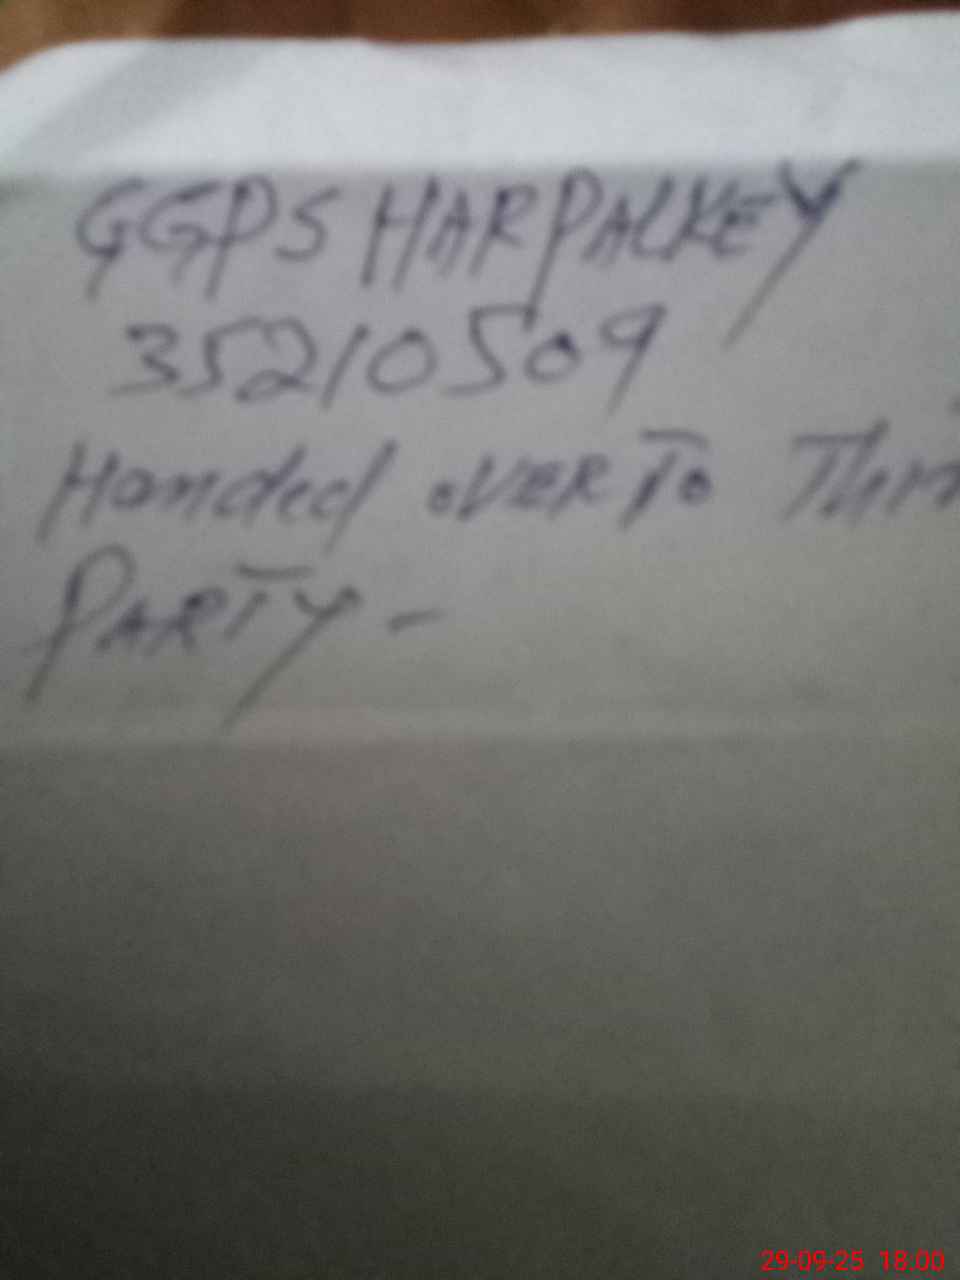 GGPS HARPALKEY
35210509
Handed OVER To Thir
PARTY -
29-09-25 18:00